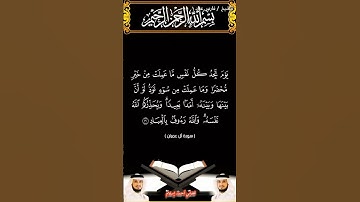 بسم الله الرحمن الرحيم
يَوْمَ تَجِدُ كُلُّ نَفْسٍ مَّا عَمِلَتْ مِنْ خَيْرٍ
مُّحْضَرًا وَمَا عَمِلَتْ مِن سُوءٍ تَوَدُّ لَوْ أَنَّ
بَيْنَهَا وَبَيْنَهُ أَمَدًا بَعِيدًا وَيُحَذِّرُكُمُ اللَّهُ
نَفْسَهُ وَاللَّهُ رَءُوفٌ بِالْعِبَادِ
(سورة آل عمران)